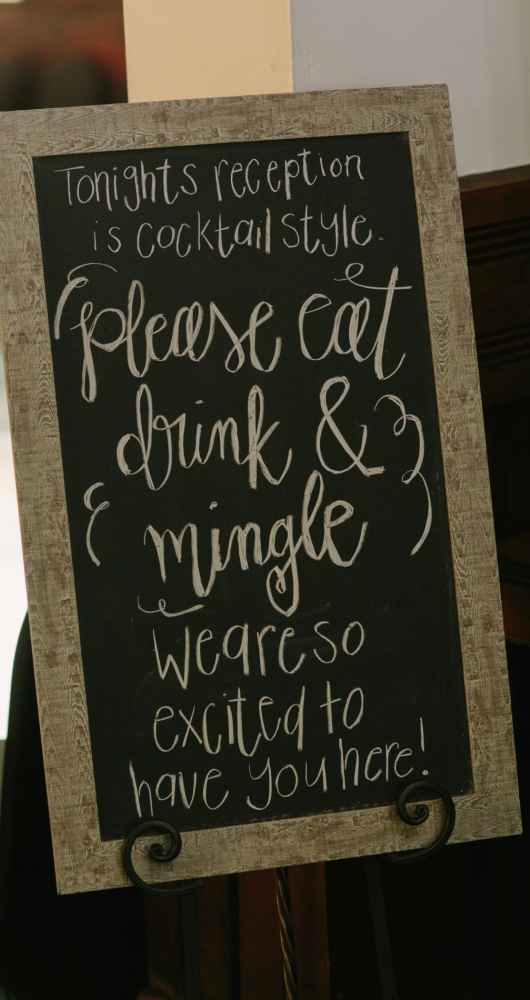 Tonights reception
is cocktail style.
please eat
drink &
mingle
We are so
excited to
have you here!